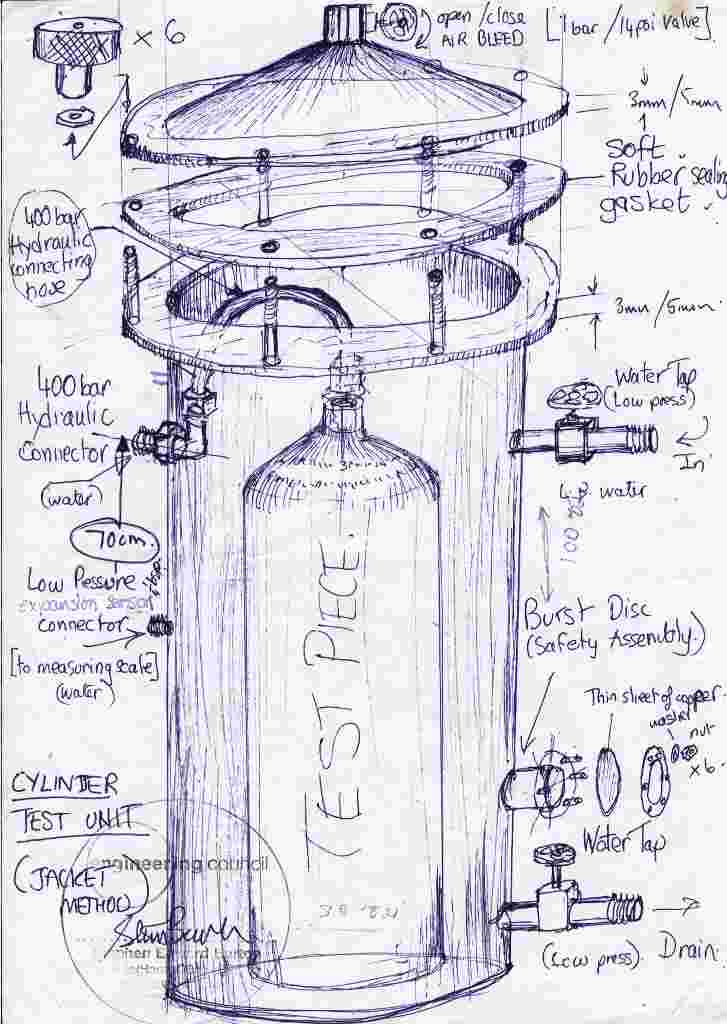 open/close
AIR BLEED
[1 bar / 14psi valve]
x 6
3mm/5mm
Soft
Rubber sealing
gasket
400 bar
Hydraulic
connecting
hose
3mm/5mm
400 bar
Hydraulic
Connector
(water)
Water Tap
(Low press)
In
L.P. water
70cm.
100
Low Pressure
expansion sensor
connector
[to measuring scale]
(water)
Burst Disc
(Safety Assembly)
TEST PIECE.
Thin sheet of copper
washer
nut
x6
CYLINDER
TEST UNIT
(JACKET
METHOD)
engineering council
Water Tap
(Low press)
Drain